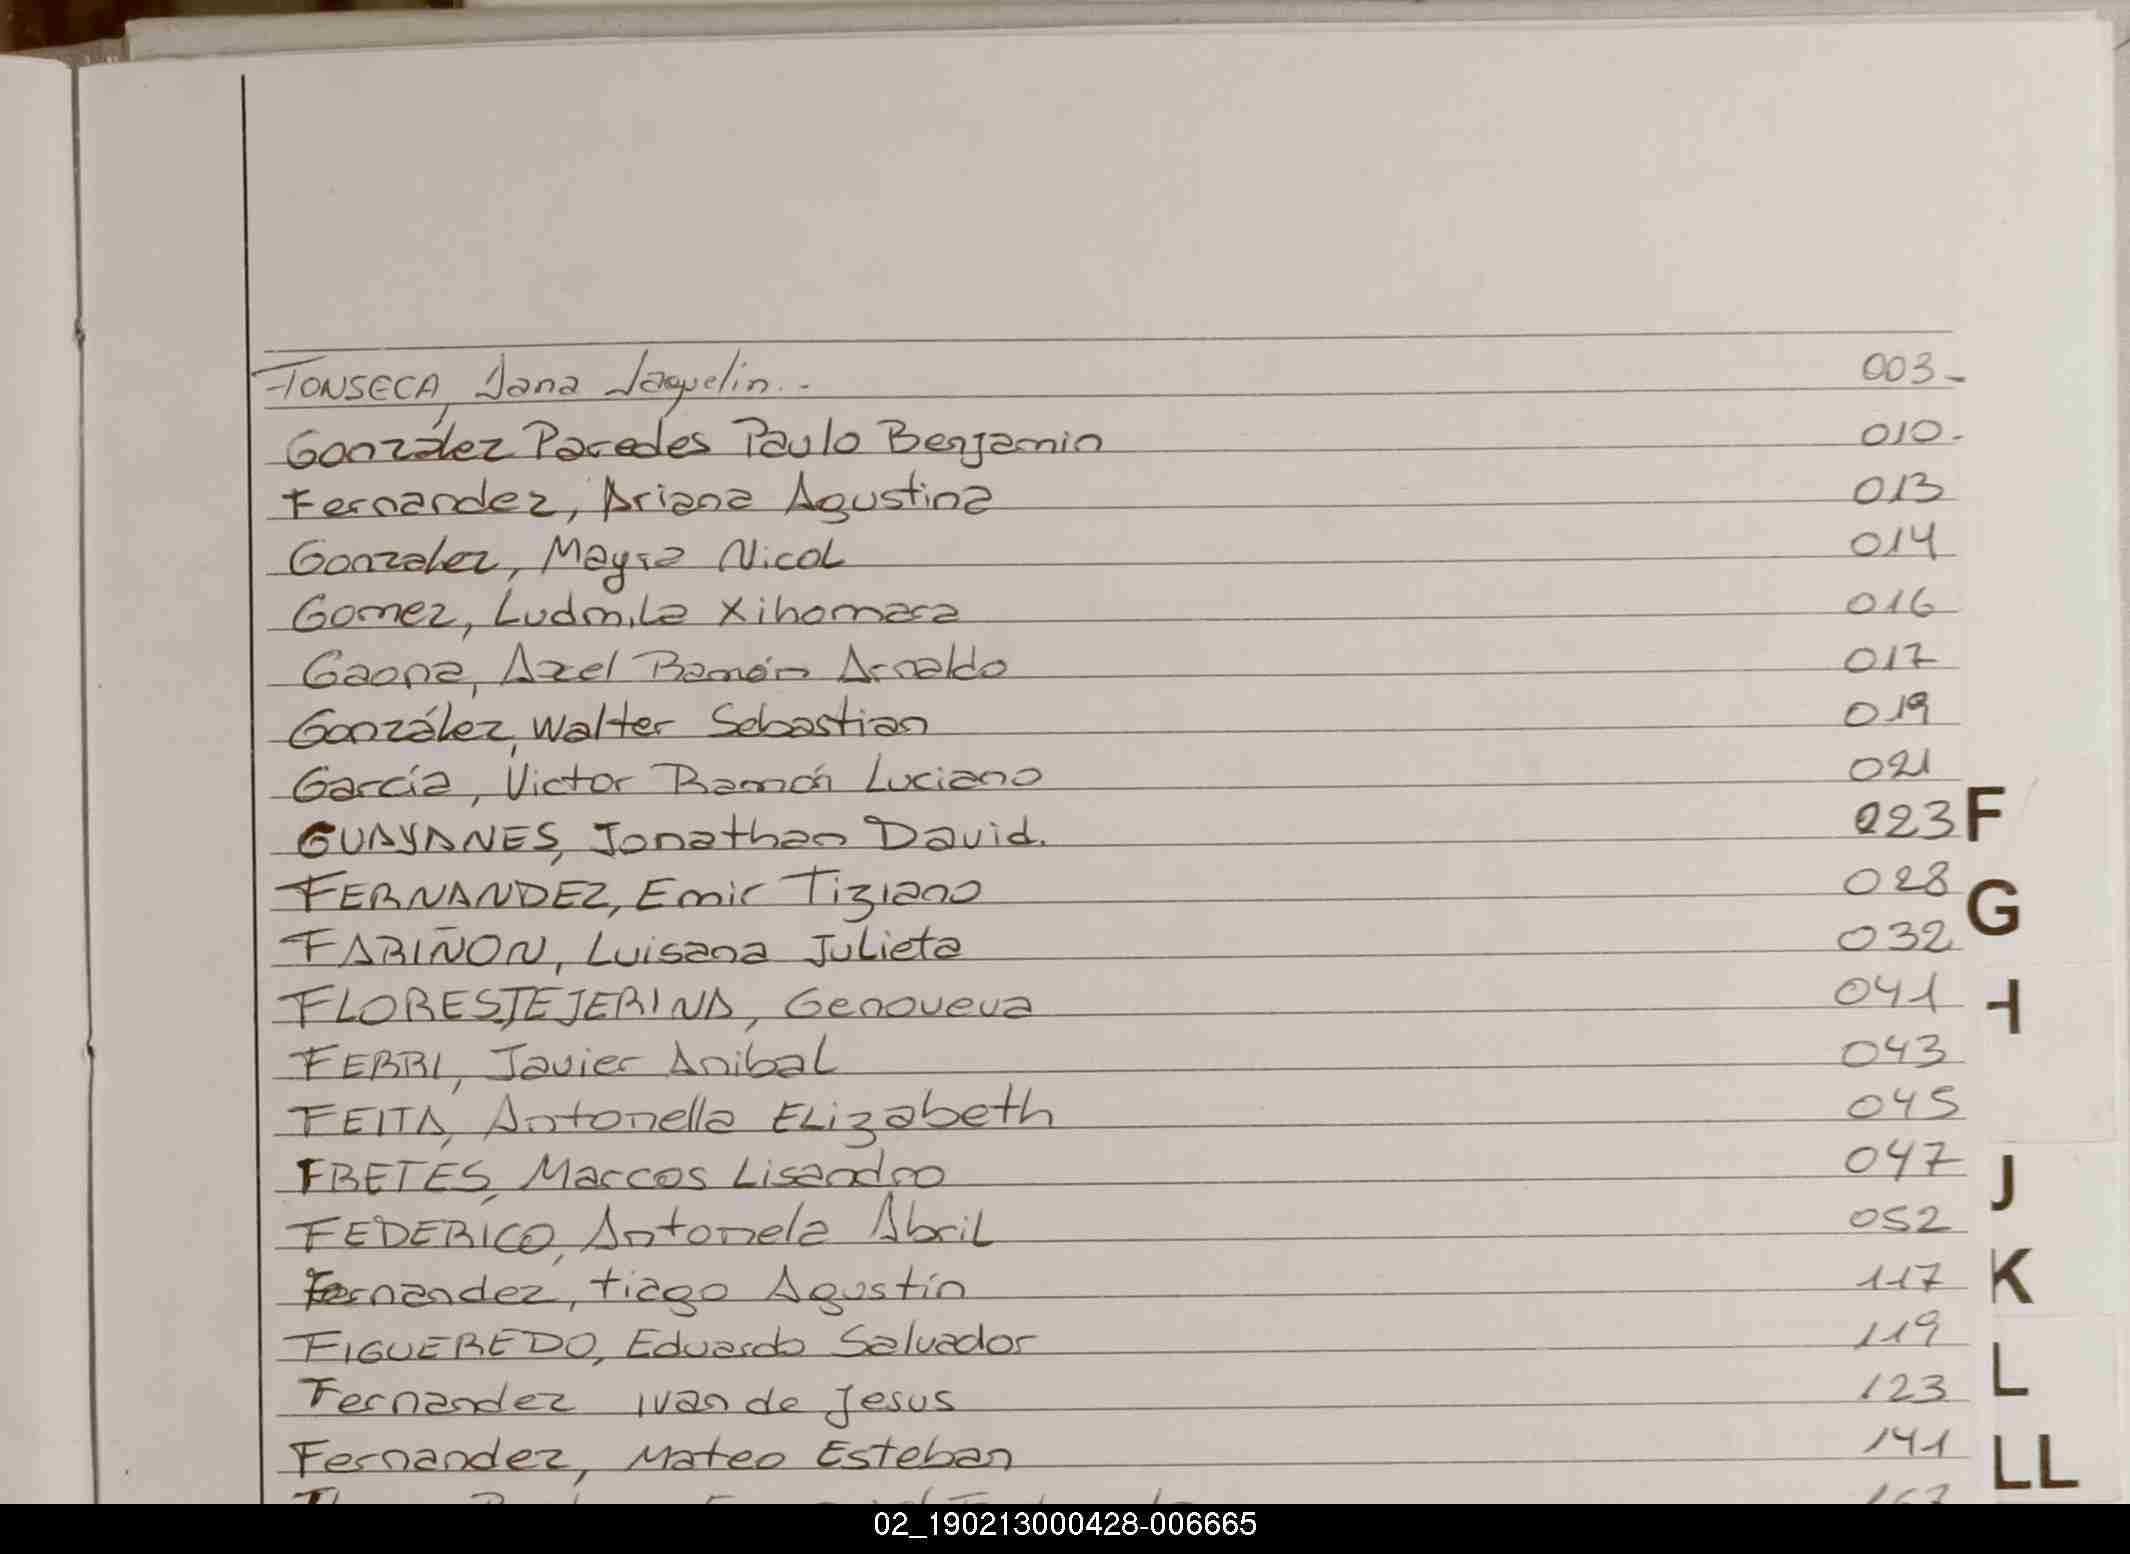 FONSECA, Dana Jaquelin.. 003-
González Paredes Paulo Benjamin 010-
Fernandez, Ariana Agustina 013
Gonzalez, Mayra Nicol 014
Gomez, Ludmila Xihomara 016
Gaona, Axel Ramón Arnaldo 017
González, Walter Sebastian 019
García, Victor Ramón Luciano 021
GUAYANES, Jonathan David. 023 F
FERNANDEZ, Emir Tiziano 028
G
FARIÑON, Luisana Julieta 032
FLORESTEJERINA, Genoveva 041
H
FERRI, Javier Anibal 043
FEITA, Antonella ELizabeth 045
FRETES, Marcos Lisandro 047
J
FEDERICO, Antonela Abril 052
Fernandez, tiago Agustín 117
K
FIGUEREDO, Eduardo Salvador 119
Fernandez ivan de Jesus 123
L
Fernandez, Mateo Esteban 141
LL
02_190213000428-006665